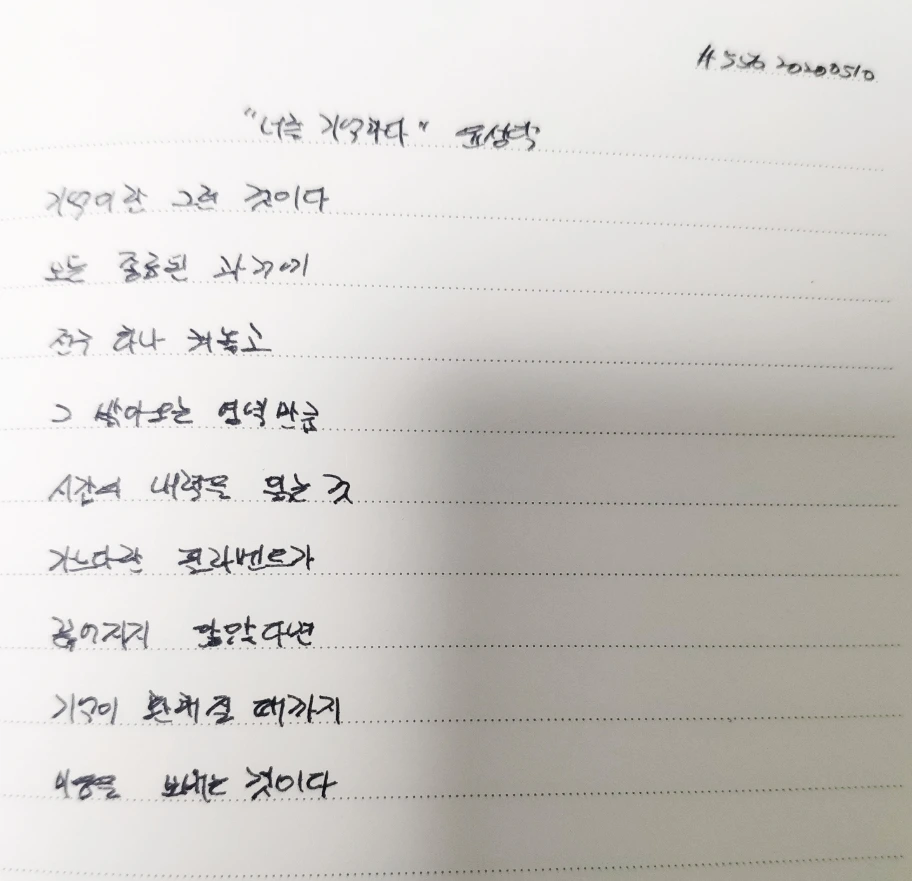 #556 20200510
"너는 기억하다" 윤성택
기억이란 그런 것이다
모든 종료된 과거에
전구 하나 켜놓고
그 밝아오는 영역만큼
시간의 내력을 읽는 것
가느다란 필라멘트가
끊어지지 않았다면
기억이 환해질 때까지
보내는 것이다